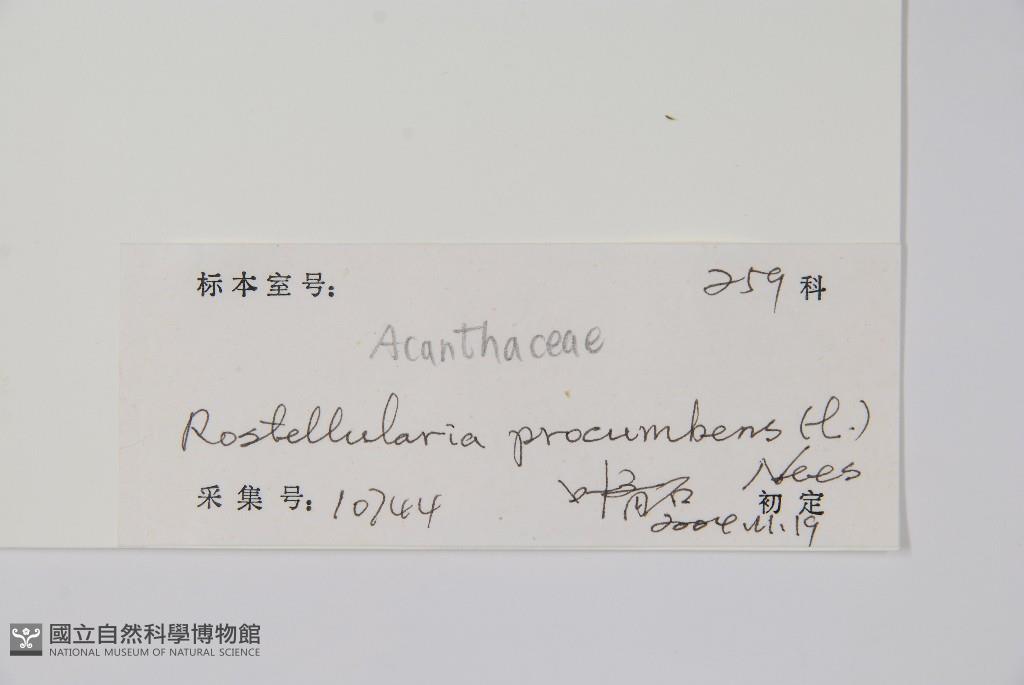 标本室号： 259 科
Acanthaceae
Rostellularia procumbens (L.)
Nees
采集号： 10744 初定
2004.11.19
國立自然科學博物館
NATIONAL MUSEUM OF NATURAL SCIENCE